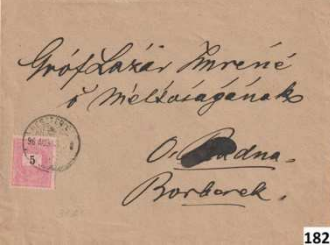 Gróf Lázár Imréné
ő Méltóságának
O. Radna.
Borberek.
5
182